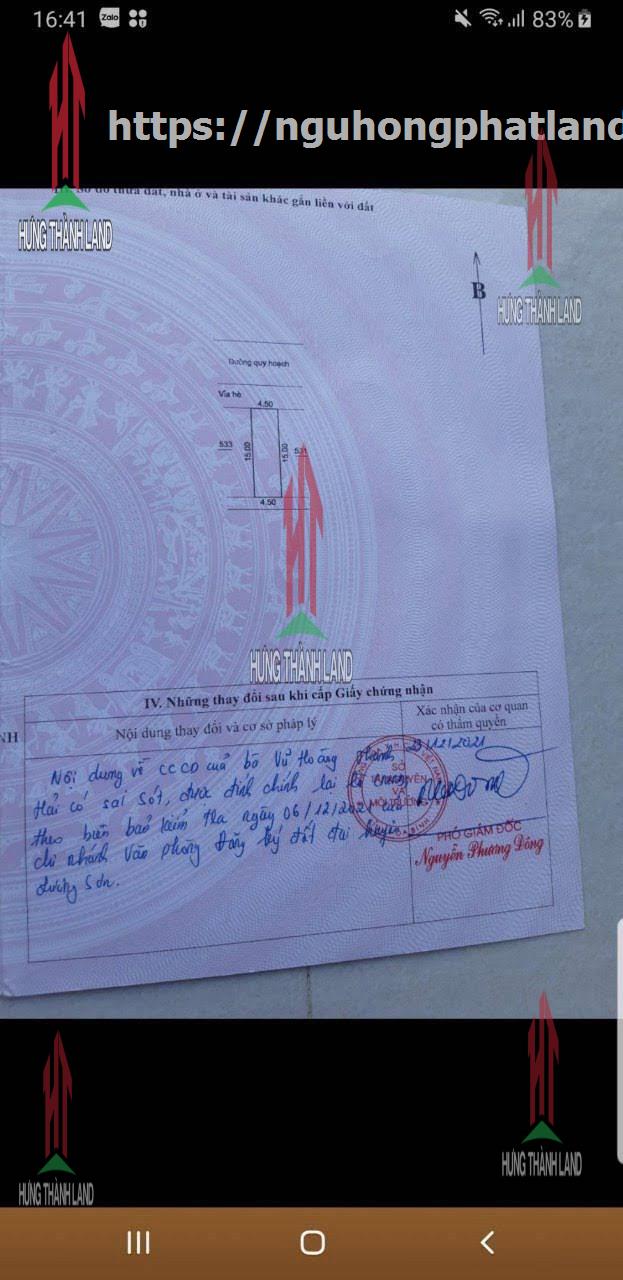 16:41 Zalo 83%
https://nguhongphatland
Sơ đồ thửa đất, nhà ở và tài sản khác gắn liền với đất
HƯNG THÀNH LAND
HƯNG THÀNH LAND
B
Đường quy hoạch
Vỉa hè
4.50
533
15.00
15.00
531
4.50
HƯNG THÀNH LAND
IV. Những thay đổi sau khi cấp Giấy chứng nhận
NH
Nội dung thay đổi và cơ sở pháp lý
Xác nhận của cơ quan
có thẩm quyền
Nội dung về CCCD của bà Vũ Hoàng
Hải có sai sót, được đính chính lại
theo biên bản kiểm tra ngày 06/12/2021 của
chi nhánh Văn phòng Đăng ký đất đai huyện
Lương Sơn.
23/12/2021
SỞ
TÀI NGUYÊN
VÀ
MÔI TRƯỜNG
PHÓ GIÁM ĐỐC
Nguyễn Phương Đông
HƯNG THÀNH LAND
HƯNG THÀNH LAND